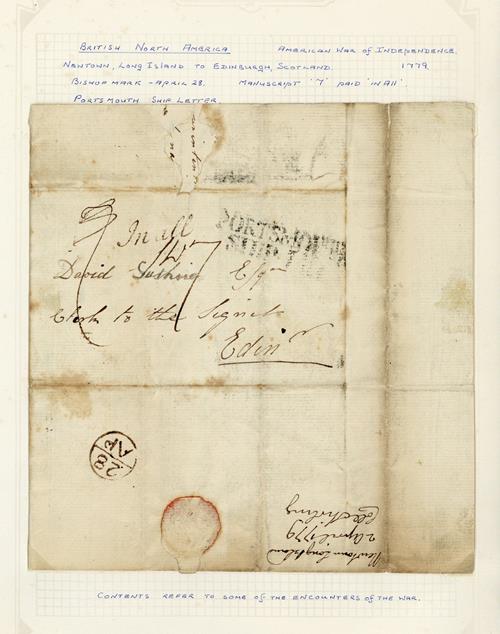 British North America American War of Independence.
Newtown, Long Island to Edinburgh, Scotland. 1779.
Bishop mark - April 28. Manuscript '7' paid 'in all'.
Portsmouth Ship Letter.
PORTSMOUTH
SHIP
In all
David Esqr
Clerk to the Signet
Edinr
28
AP
Newtown Long Island
2 April 1779
Contents refer to some of the encounters of the war.